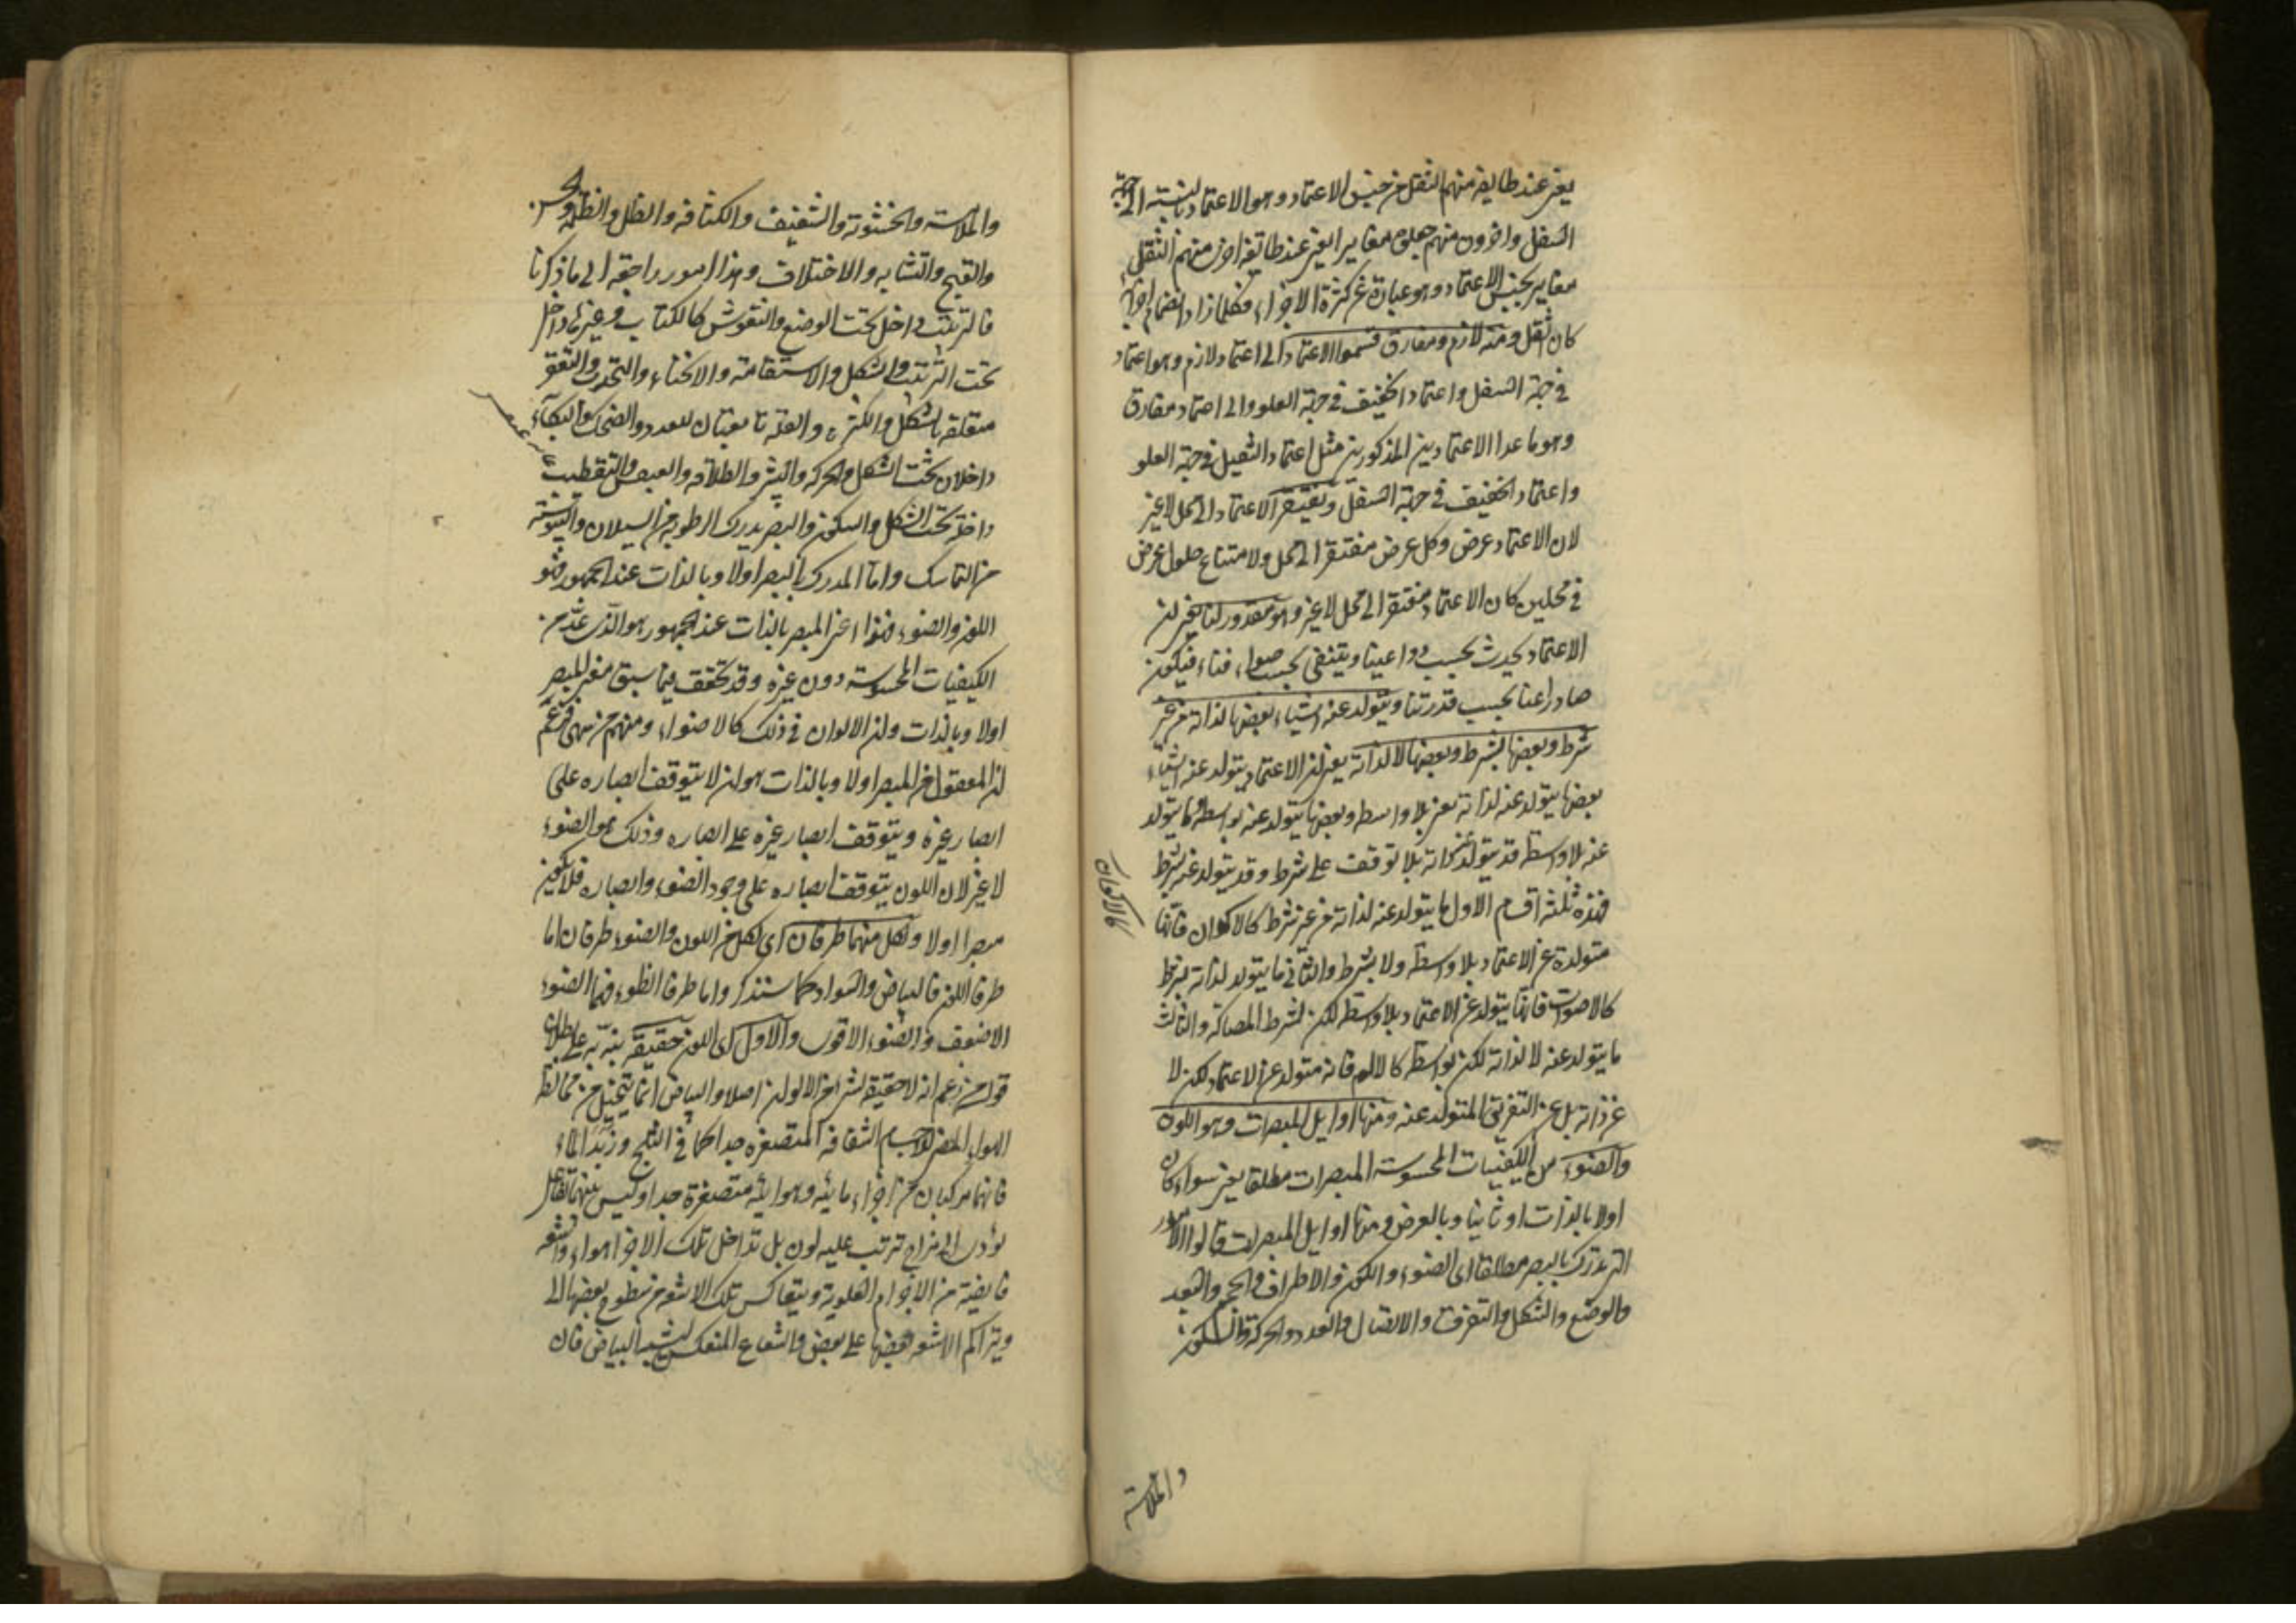 يعني عند طايفة منهم الثقل من جنس الاعتماد وهو الاعتماد بالنسبة الى جهة
السفل واخرون منهم جعلوه مغايرا يعني عند طائفة اخرى منهم الثقل
مغاير بجنس الاعتماد وهو عبارة عن كثرة الاجزاء فكلما زاد انضمام اجزائه
كان اثقل ومنه لازم ومفارق قسموا الاعتماد الى اعتماد لازم وهو اعتماد
في جهة السفل واعتماد الخفيف في جهة العلو والى اعتماد مفارق
وهو ما عدا الاعتمادين المذكورين مثل اعتماد الثقيل في جهة العلو
واعتماد الخفيف في جهة السفل ويفتقر الاعتماد الى محل لا غير
لان الاعتماد عرض وكل عرض مفتقر الى محل ولامتناع حلول عرض
في محلين كان الاعتماد مفتقرا الى محل لا غير وهو مقدور لنا يعني ان
الاعتماد يحدث بحسب دواعينا وينتفي بحسب صوارفنا فيكون
صادرا عنا بحسب قدرتنا ويتولد عنه اشياء بعضها لذاته من غير
شرط وبعضها بشرط وبعضها لا لذاته يعني ان الاعتماد يتولد عنه اشياء
بعضها يتولد عنه لذاته يعني بلا واسطه وبعضها يتولد عنه بواسطه وما يتولد
عنه بلا واسطة قد يتولد لذاته بلا توقف على شرط وقد يتولد عنه بشرط
فهذه ثلثة اقسام الاول ما يتولد عنه لذاته من غير شرط كالاكوان فانها
متولدة عن الاعتماد بلا واسطه ولا بشرط والثاني ما يتولد لذاته بشرط
كالاصوات فانها يتولد عن الاعتماد بلا واسطه لكن بشرط المصاكة والثالث
ما يتولد عنه لا لذاته لكن بواسطه كالالم فانه متولد عن الاعتماد لكن لا
عن ذاته بل عن التفريق المتولد عنه ومنها اوايل المبصرات وهو اللون
والضوء من الكيفيات المحسوسة المبصرات مطلقا يعني سواء كان
اولا بالذات او ثانيا وبالعرض ومنها اوايل المبصرات قالوا الامور
التي يدرك بالبصر مطلقا اى الضوء واللون والاطراف والحجم والبعد
والوضع والشكل والتفرق والاتصال والعدد والحركة والسكون
كالاكوان
والملاسة
والملاسة والخشونة والشفيف والكثافه والظل والظلمة والحسن
والقبح والتشابه والاختلاف وهذا امور راجعة الى ما ذكرنا
فالترتيب داخل تحت الوضع والنقوش كالكتابة وغيرها داخل
تحت الترتيب والشكل والاستقامة والانحناء والتحدب والتقعر
متعلقة بالشكل والكثرة والقلة تابعتان للعدد والضحك والبكاء
داخلان تحت الشكل والحركه والبشر والطلاقه والعبوس والتقطيب
داخلة تحت الشكل والسكون والبصر يدرك الرطوبة من السيلان واليبوسة
من التماسك واما المدرك بالبصر اولا وبالذات عند الجمهور فهو
اللون والضوء فهذا اعني المبصر بالذات عند الجمهور هو الذي عد من
الكيفيات المحسوسة دون غيره وقد تحقق فيما سبق معنى المبصر
اولا وبالذات وان الالوان في ذلك كالاضواء ومنهم من سهى فزعم
ان المعقول من المبصر اولا وبالذات هو ان لا يتوقف ابصاره على
ابصار غيره ويتوقف ابصار غيره على ابصاره وذلك هو الضوء
لا غير لان اللون يتوقف ابصاره على وجود الضوء وابصاره فلا يكون
مبصرا اولا ولكل منهما طرفان اى لكل من اللون والضوء طرفان اما
طرفا اللون فالبياض والسواد كما ستذكر واما طرفا الضوء فهما الضوء
الاضعف والضوء الاقوى والاول اى اللون حقيقة نبه به على بطلان
قول من زعم انه لا حقيقة لشيء من الالوان اصلا والبياض انما يتخيل من مخالطة
الهواء المضيء للاجسام الشفافه المتصغره جدا كما في الثلج وزبد الماء
فانهما مركبان من اجزاء مائيه وهوائية متصغرة جدا وليس بينهما تفاعل
يؤدى الى مزاج ترتب عليه لون بل تداخل تلك الاجزاء هواء واشعه
فايضة من الاجرام العلوية ويتعاكس تلك الاشعه من سطوح بعضها الى
ويتراكم الاشعه بعضها على بعض والشعاع المنعكس يشبه البياض فان